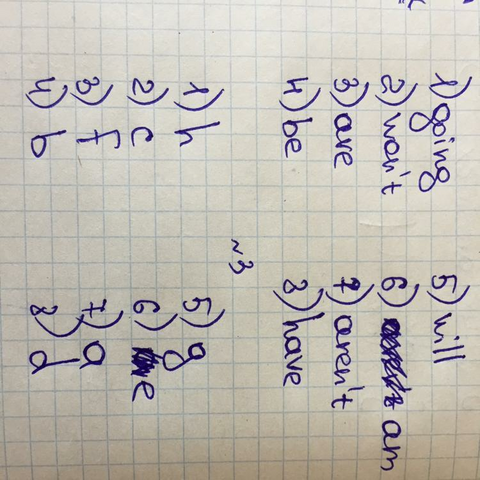 1) going 5) will
2) won't 6) am
3) are 7) aren't
4) be 8) have
~3
1) h 5) g
2) c 6) e
3) f 7) a
4) b 8) d